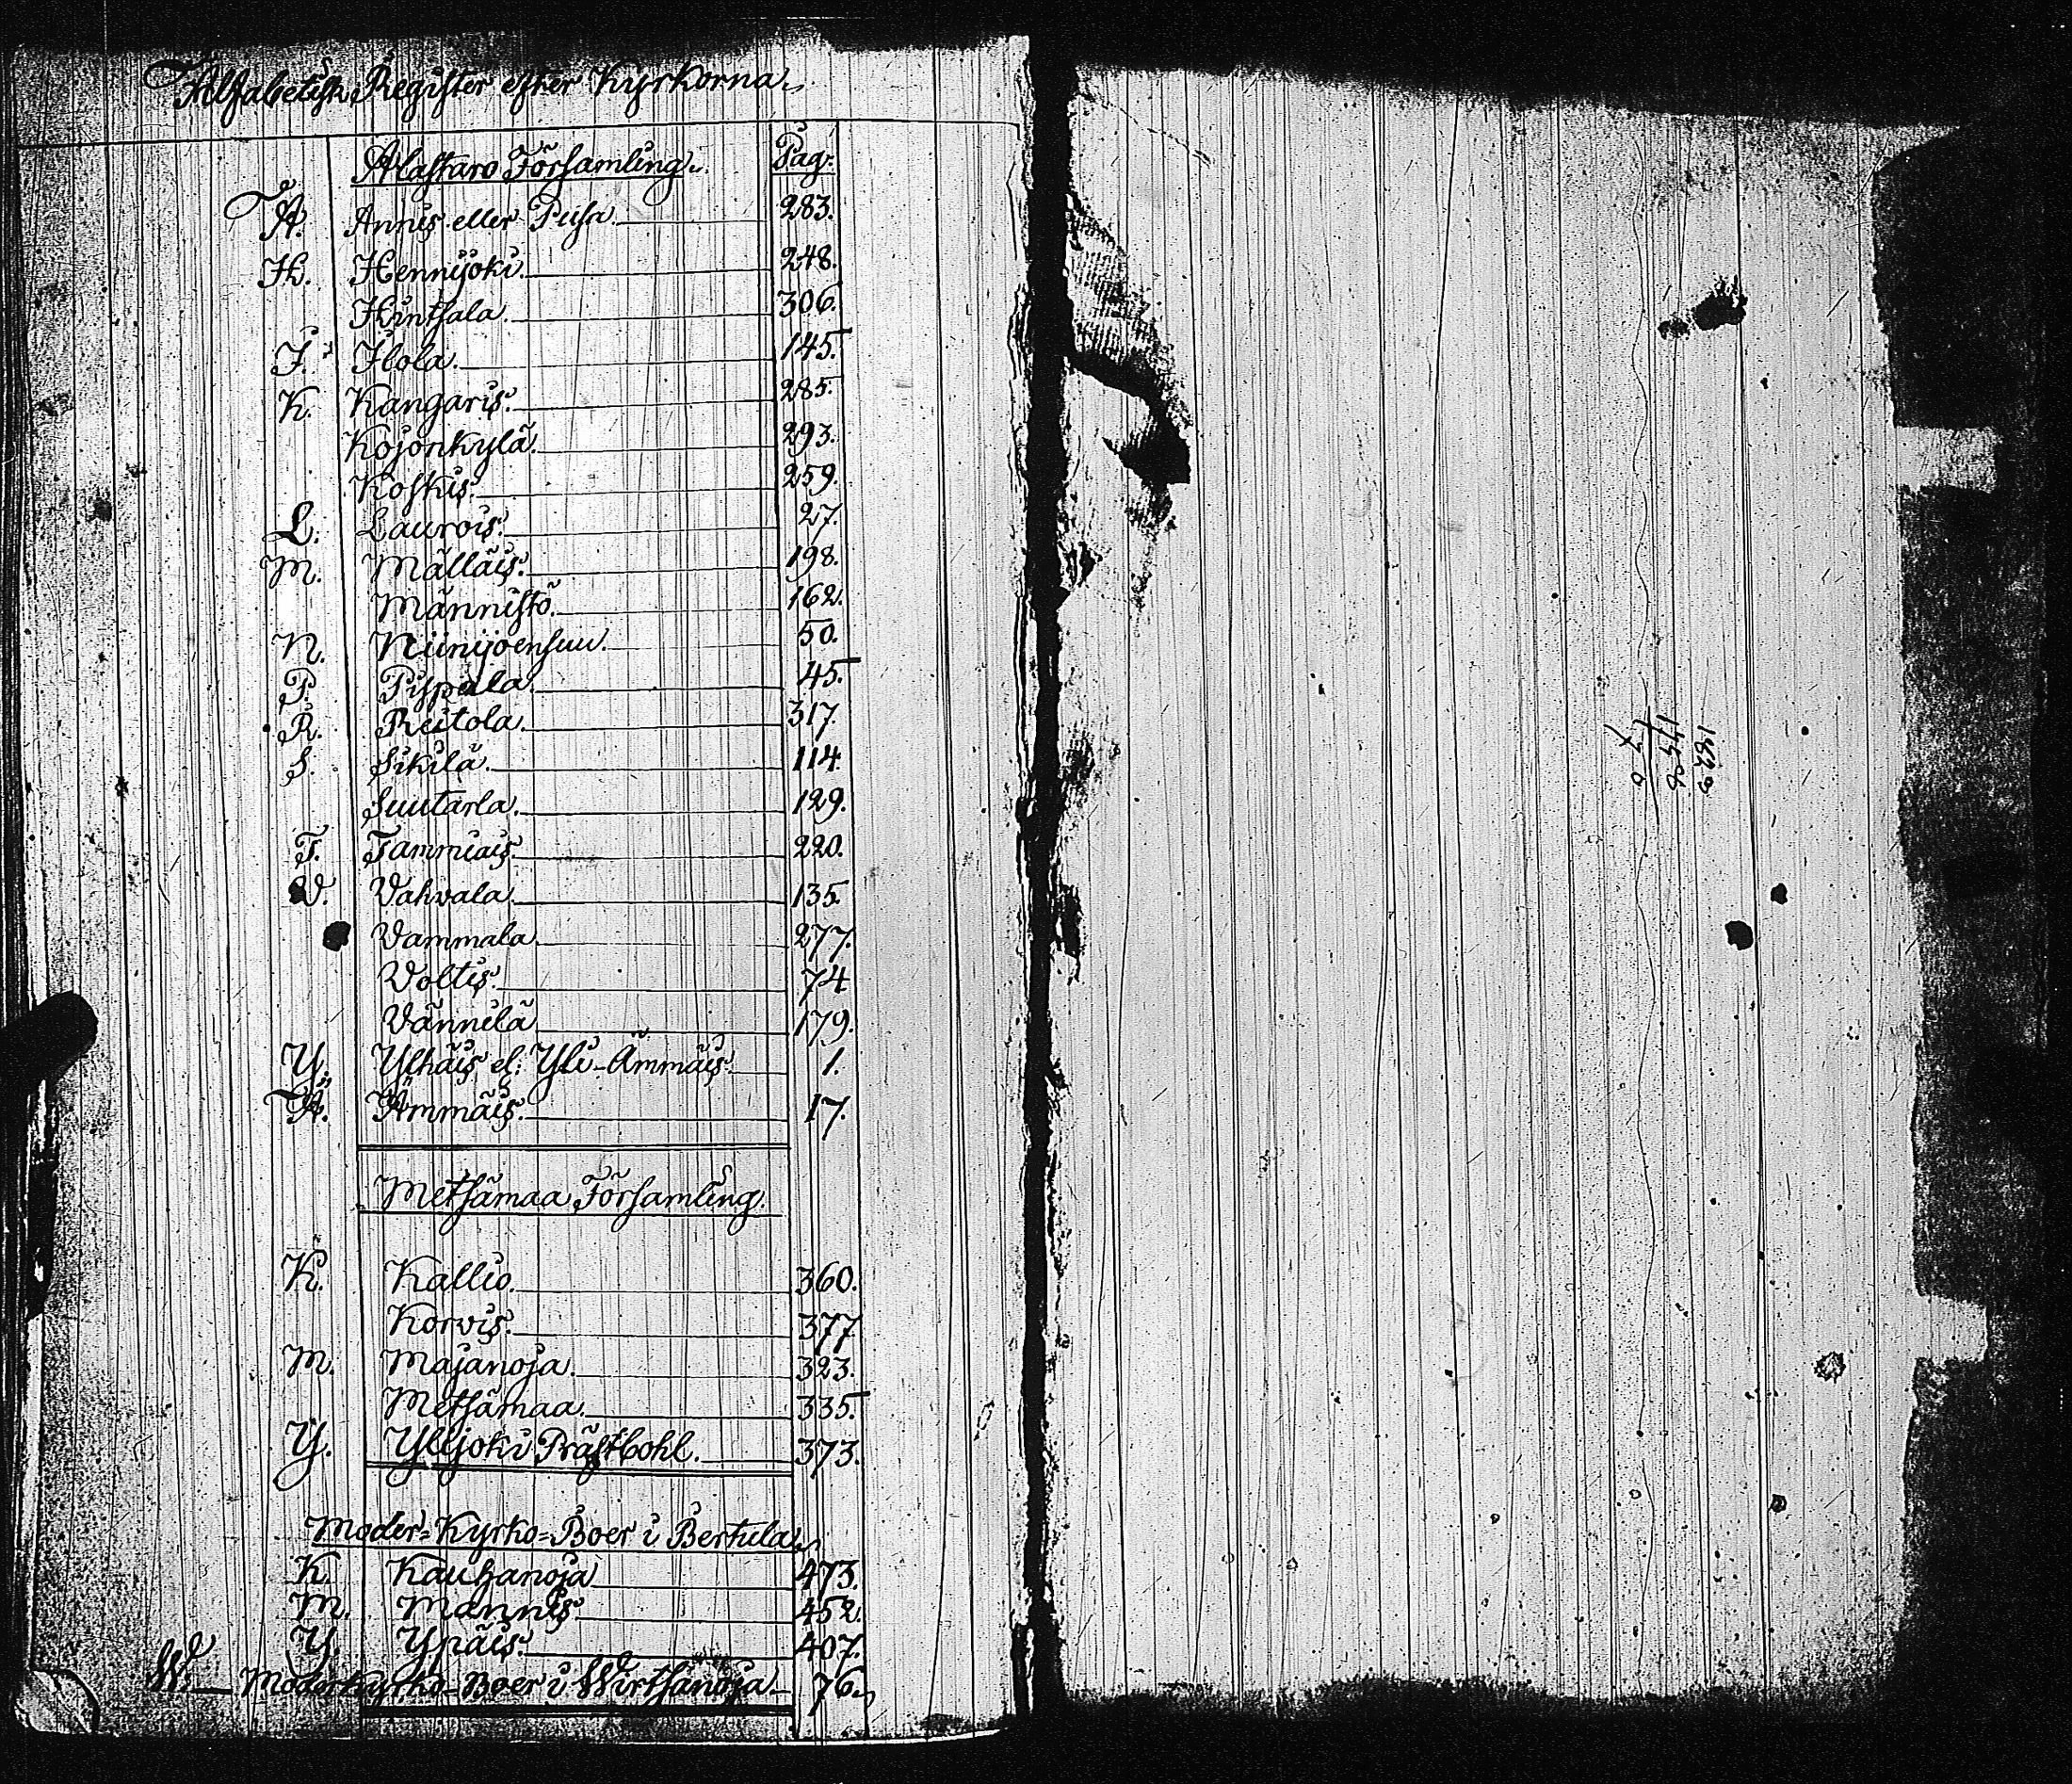 Alfabetisk Register efter Kyrkorna
Alastaro Församling. Pag.
A. Annis eller Pusa. 283.
H. Hennijoki. 248.
Hintsala. 306.
I. Ilola. 145.
K. Kangaris. 285.
Kojonkylä. 293.
Koskis. 259.
L. Laurois. 27.
M. Mälläis. 198.
Männistö. 162.
N. Niinijoensuu. 50.
P. Pispala. 45.
R. Reitola. 317.
S. Sikilä. 114.
Suutarla. 129.
T. Tammiais. 220.
V. Vahvala. 135.
Vammala. 277.
Voltis. 74
Vännilä. 179.
Y. Ylhäis el: Yli-Ämmäis. 1.
Ä. Ämmäis. 17.
Metsämaa Församling.
K. Kallio. 360.
Korvis. 377
M. Majanoja. 323.
Metsämaa. 335.
Y. Ylijoki Prästbohl. 373.
Moder-Kyrko-Boer i Bertula.
K. Kauhanoja 473.
M. Mannis. 452.
Y. Ypäis. 407.
W. Moderkyrko-Boer i Wirtsanoja 76.